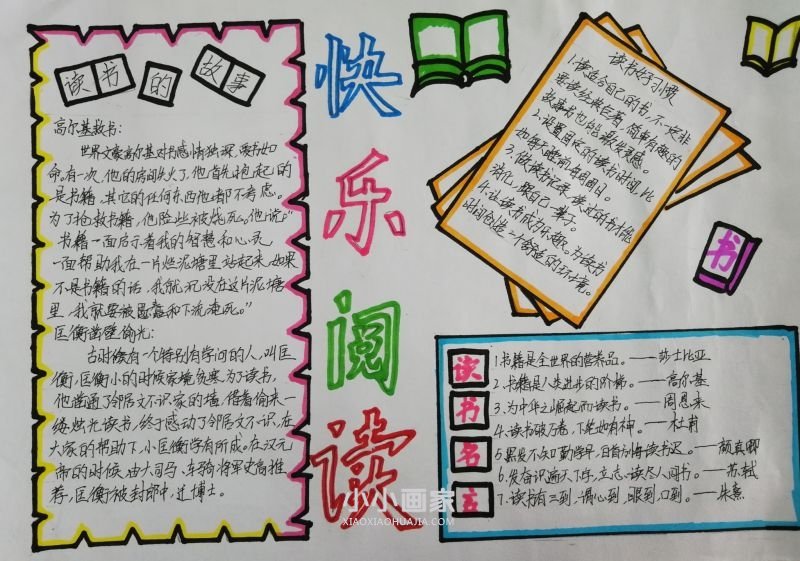 读书的故事
高尔基救书:
世界文豪高尔基对书感情独深,爱书如
命。有一次,他的房间失火了,他首先抱起的
是书籍,其它的任何东西他都不考虑。
为了抢救书籍,他险些被烧死。他说:"
书籍一面启示着我的智慧和心灵,
一面帮助我在一片烂泥塘里站起来,如果
不是书籍的话,我就沉没在这片泥塘
里,我就要被愚蠢和下流淹死。"
匡衡凿壁偷光:
古时候有一个特别有学问的人,叫匡
衡,匡衡小的时候家境贫寒,为了读书,
他凿通了邻居文不识家的墙,借着偷来一
缕烛光读书,终于感动了邻居文不识,在
大家的帮助下,小匡衡学有所成。在汉元
帝的时候,由大司马、车骑将军史高推
荐,匡衡被封郎中,迁博士。
快乐阅读
读书好习惯
1.读适合自己的书,不一定非
要读经典巨著,简单有趣的
故事书也能散发灵感。
2.设置固定的读书时间,比
如每天睡前
3.做读书记录,读过的书才能
消化,
4.让读书成为乐趣。为读书
时间创造一个舒适的环境。
书
读书名言
1.书籍是全世界的营养品。——莎士比亚
2.书籍是人类进步的阶梯。——高尔基
3.为中华之崛起而读书。——周恩来
4.读书破万卷,下笔如有神。——杜甫
5.黑发不知勤学早,白首方悔读书迟。——颜真卿
6.发奋识遍天下字,立志读尽人间书。——苏轼
7.读书有三到,谓心到,眼到,口到。——朱熹
小小画家
XIAOXIAOHUAJIA.COM